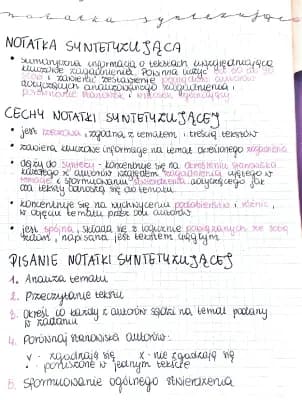 notatka syntetyzująca
NOTATKA SYNTETYZUJĄCA
• sumaryczna informacja o tekstach uwzględniająca
kluczowe zagadnienia. Powinna liczyć od 60 do 90
słów i zawierać zestawienie poglądów autorów
dotyczących analizowanego zagadnienia i
porównanie stanowisk i wniosek
CECHY NOTATKI SYNTETYZUJĄCEJ
• jest rzeczowa, zgodna z tematem i treścią tekstów
• zawiera kluczowe informacje na temat określonego zagadnienia
• dąży do syntezy - koncentruje się na określeniu stanowiska
każdego z autorów względem zagadnienia ujętego w
temacie i sformułowaniu stwierdzenia dotyczącego jak
oba teksty odnoszą się do tematu
• koncentruje się na uchwyceniu podobieństw i różnic,
w ujęciu tematu przez obu autorów
• jest spójna, składa się z logicznie powiązanych ze sobą
zdań, napisana jest tekstem ciągłym
PISANIE NOTATKI SYNTETYZUJĄCEJ
1. Analiza tematu
2. Przeczytanie tekstu
3. Określ co każdy z autorów sądzi na temat podany
w zadaniu
4. Porównaj stanowiska autorów:
v - zgadzają się x - nie zgadzają się
• poruszone w jednym tekście
5. sformułowanie ogólnego stwierdzenia